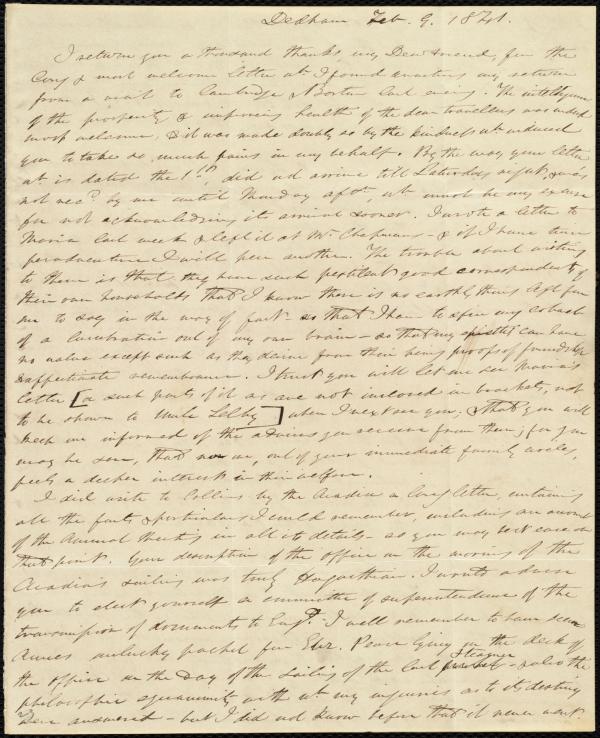 Dedham Feb. 9. 1841.
I return you a thousand thanks, my Dear friend, for the
long & most welcome letter wh I found awaiting my return
from a visit to Cambridge & Boston last evening. The intelligence
of the prosperity & improving health of the dear travellers was indeed
most welcome, & it was made doubly so by the kindness wh induced
you to take so much pains in my behalf. By the way your letter
wh is dated the 1st, did not arrive till Saturday night, & was
not recd by me until Monday aftn, wh must be my excuse
for not acknowledging its arrival sooner. I wrote a letter to
Maria last week & left it at Mr Chapman's - & if I have time
before I will pen another. The trouble about writing
to them is that they have such good correspondents of
their own households that I know there is no earthly thing left for
me to say in the way of fact - so that I have to spin my cobweb
of a lucubration out of my own brain - so that my epistles can have
no value except such as they derive from their being proofs of friendship
& affectionate remembrance. I trust you will let me see Maria's
letter [or such parts of it as are not inclosed in brackets, not
to be shown to Uncle ] when I next see you, & that you will
keep me informed of the advices you receive from them, for you
may be sure, that no one, out of your immediate family circles,
feels a deeper interest in their welfare.
I did write to Collins by the Acadia a long letter, containing
all the facts & particulars I could remember, including an account
of the Annual Meeting in all its details - so you may rest easy on
that point. Your description of the office on the morning of the
Acadia's sailing was truly Hogarthian. I would advise
you to elect yourself a committee of superintendence of the
transmission of documents to Engd. I well remember to have seen
Anne's unlucky packet for Eliz. Pease lying on the desk of
the office on the day of the sailing of the last Steamer - & also the
philosophic equanimity with wh my inquiries as to its destiny
were answered - but I did not know before that it never went.